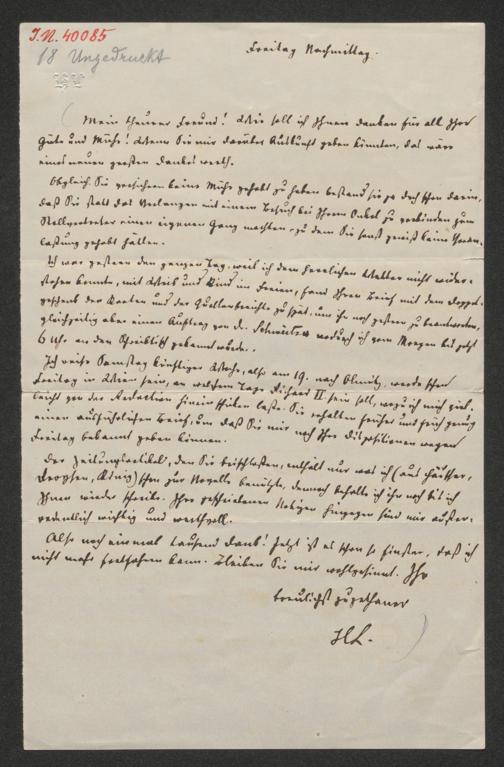 I.N. 40085
18 Ungedruckt
Freitag Nachmittag.
Mein theurer Freund! Wie soll ich Ihnen danken für all Ihre
Güte und Mühe! Wenn Sie mir darüber Auskunft geben könnten, das wäre
eines neuen großen Dankes werth.
Obgleich Sie versichern keine Mühe gehabt zu haben bestand sie ja doch schon darin,
daß Sie statt das Verlangen mit einem Besuch bei Ihrem Onkel zu verbinden zum
Stellvertreter einen eigenen Gang machten, zu dem Sie sonst gewiß keine Veran-
lassung gehabt hätten.
Ich war gestern den ganzen Tag, weil ich dem herrlichen Wetter nicht wider-
stehen konnte, mit Weib und Kind im Freien, fand Ihren Brief mit dem Doppel-
geschenk der Karten und der Quellenberichte zu spät, um ihn noch gestern zu beantworten,
gleichzeitig aber einen Auftrag von de wodurch ich vom Morgen bis jetzt
6 Uhr an den Schreibtisch gebannt wurde.
Ich reise Samstag künftiger Woche, also am 19. nach Olmütz, werde schon
Freitag in Wien sein, an welchem Tage Richard II sein soll, wozu ich mich viel-
leicht von der Redaction hinein schicken lasse. Sie erhalten früher noch zeitig genug
einen ausführlichen Brief, um daß Sie mir noch Ihre Dispositionen wegen
Freitag bekannt geben können.
Der Zeitungsartikel, den Sie beischlossen, enthält nur was ich (aus Häusser,
Droysen, König) schon zur Novelle benützte, dennoch behalte ich ihn noch bis ich
Ihnen wieder schreibe. Ihre geschriebenen Notizen hingegen sind mir außer-
ordentlich wichtig und werthvoll.
Also noch einmal tausend Dank! Jetzt ist es schon so finster, daß ich
nicht mehr fortfahren kann. Bleiben Sie mir wohlgesinnt. Ihr
treulichst zugethaner
HL.